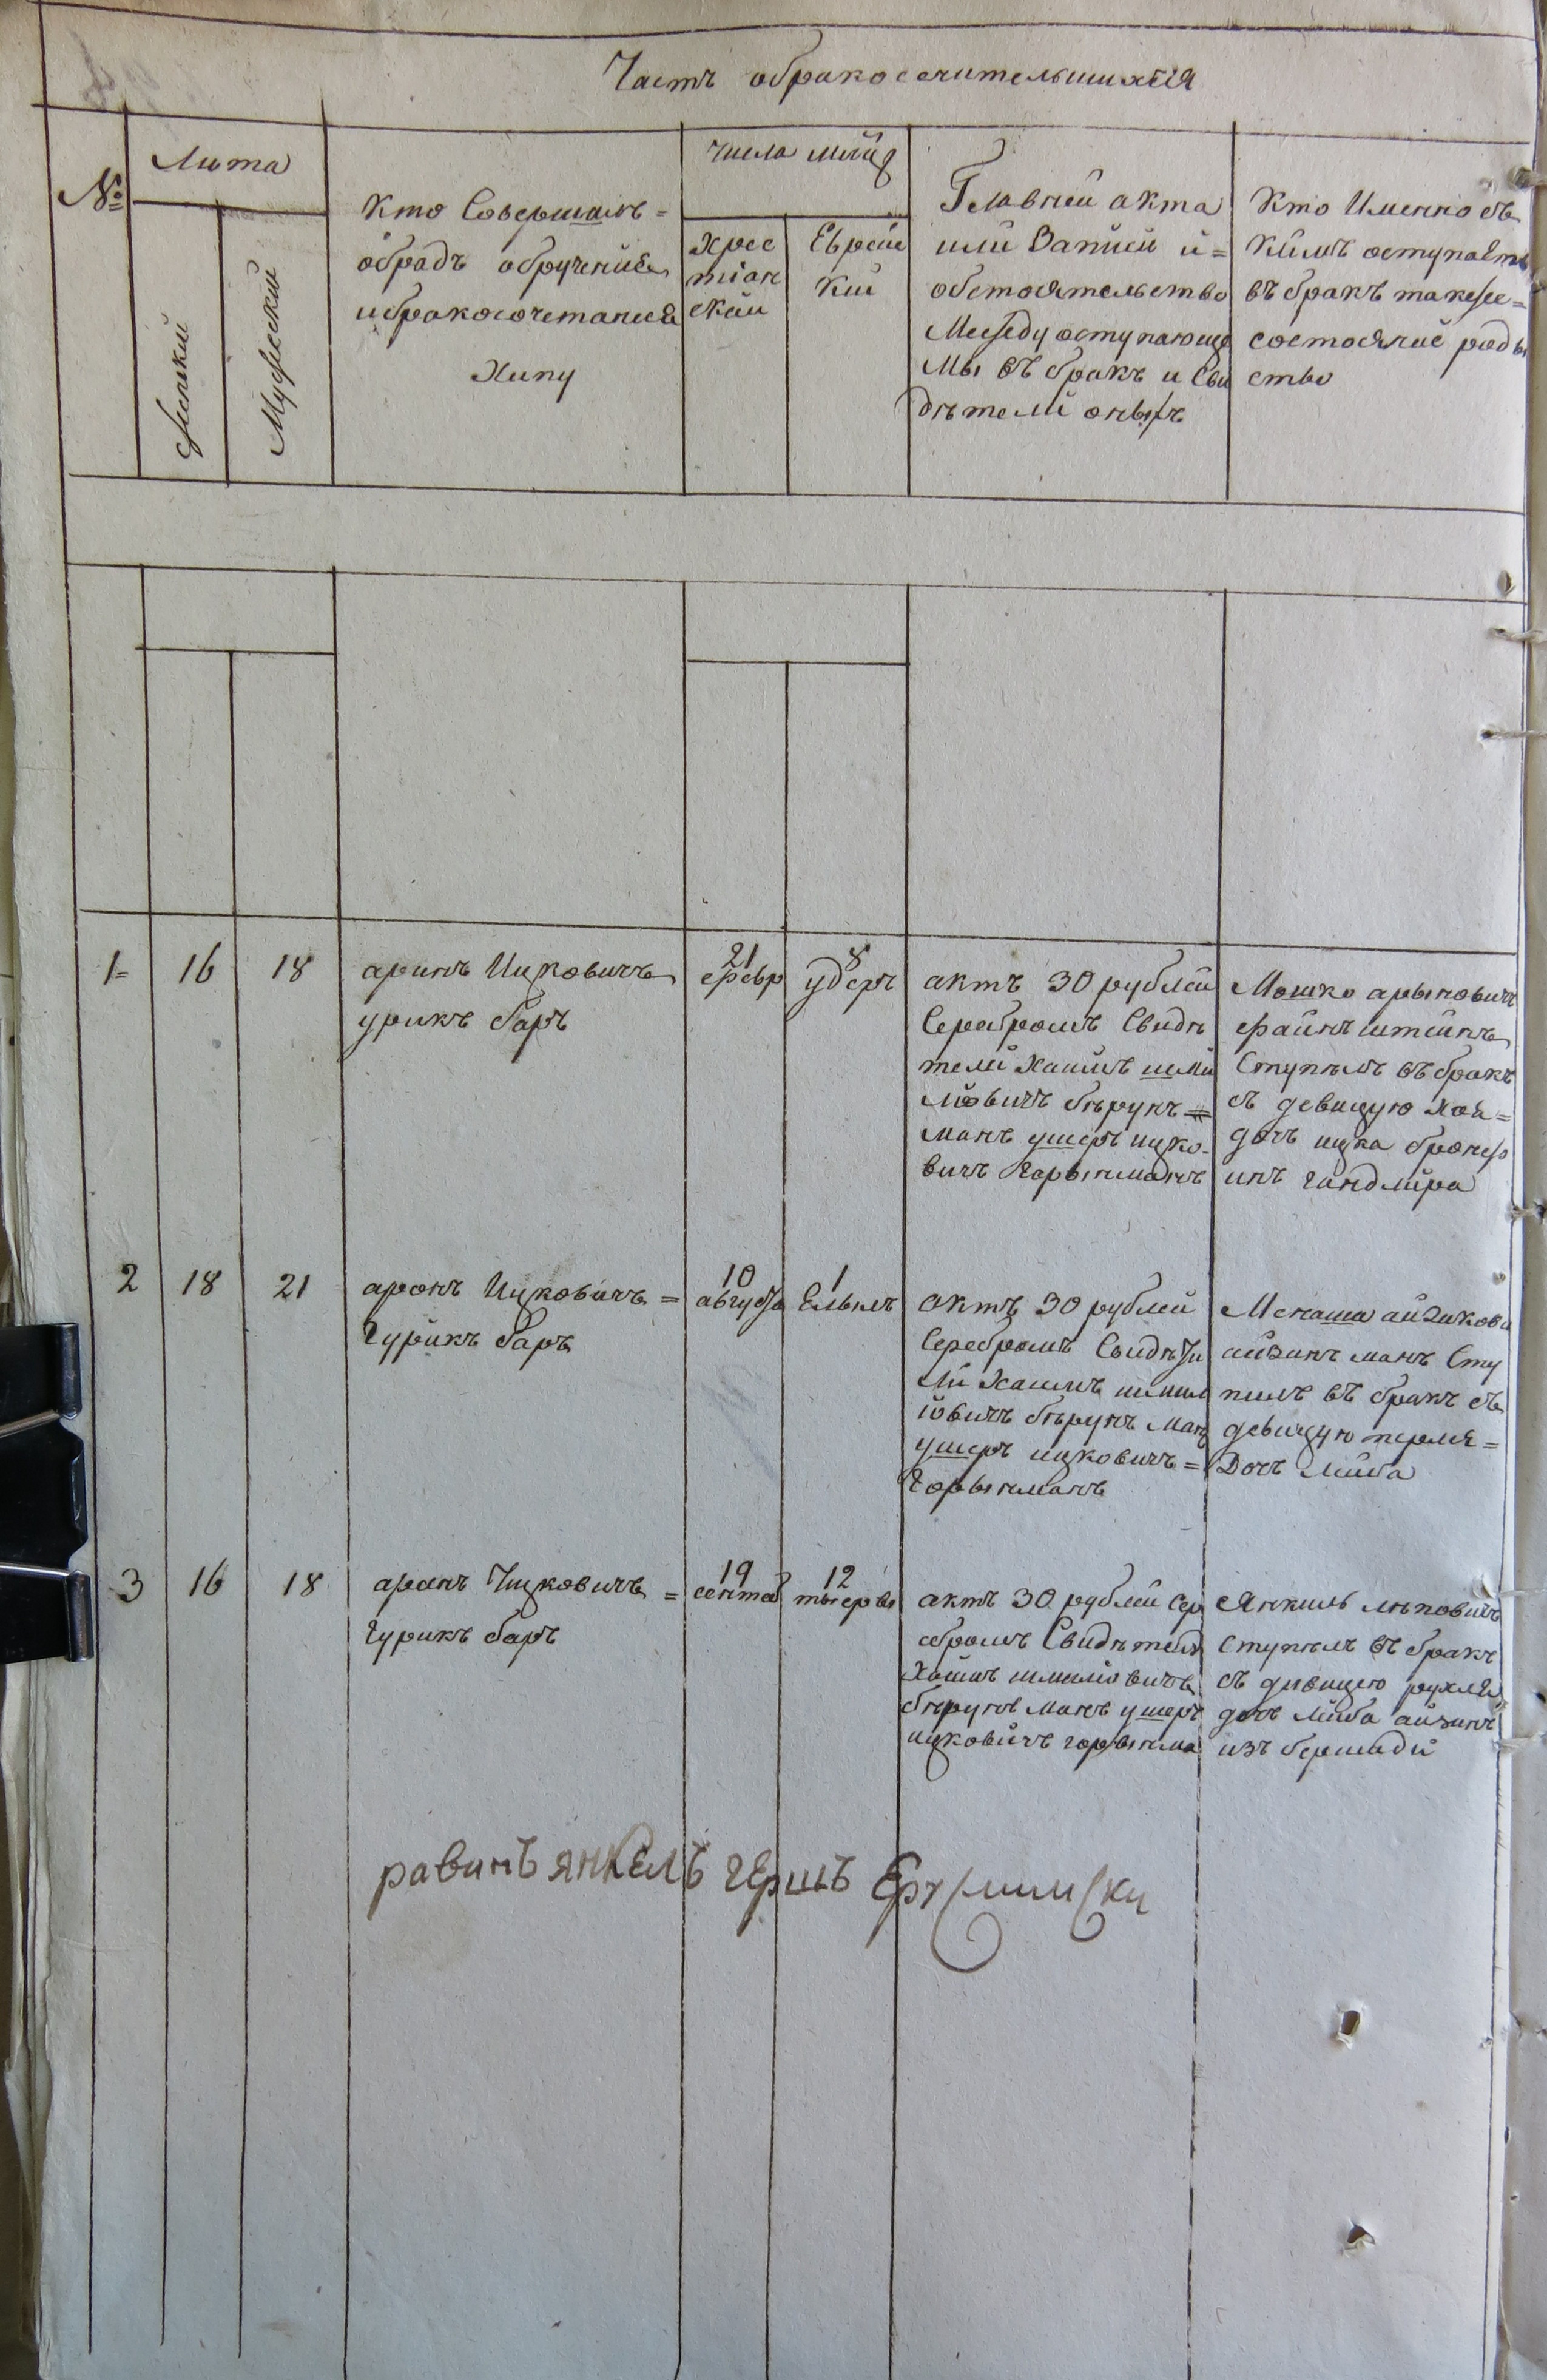 Часть обракосочительшихся
№
Льта
Женский
Мужеский
Кто Совершалъ =
обрадъ обручение
и бракосочетание
Хипу
числа
Хрес
тіан
скии
Еврейс
кий
Главнеи акта
или Записи и =
обстоятельство
Между оступающе
Мы въ бракъ и Сви
дѣтели оныхъ
Кто Именно съ
Кимъ оступаетъ
въ бракъ такъже =
состояние роды
ство
1=
16
18
аринъ Ицковичъ
урикъ баръ
21
февр
8
удеръ
актъ 30 рублей
Серебромъ Свидѣ
тели Хаимъ шми
лиовичъ бѣрунъ =
манъ ушеръ ицко-
вичъ Горынманъ
Мошко арыновичъ
файнъ штейнъ
Ступилъ въ бракъ
съ девицую Хая =
дочъ ицка бронеф
инъ гандлира
2
18
21
аронъ Ицковичъ =
Гурикъ баръ
10
августа
1
Ельилъ
актъ 30 рублей
Серебромъ Свидѣти
ли Хаимъ шмил
іовичъ бѣрунъ манъ
ушеръ ицковичъ =
Горынманъ
Менаша айзикови
айзинъ манъ Сту
пилъ въ бракъ съ
девицую перля =
Дочъ лейба
3
16
18
аранъ Ицковичъ =
Гурикъ баръ
19
сентяб
12
тысеры
актъ 30 рублей сер
ебромъ Свидѣтели
Хаимъ шмилiовичъ
бѣрунъ манъ ушеръ
ицковичъ горынма
Янкиль липовичъ
Ступилъ въ бракъ
съ дивицею рухля
дочъ лейба айзинъ
изъ бершади
равинъ янкелъ гершъ Ерусмимски